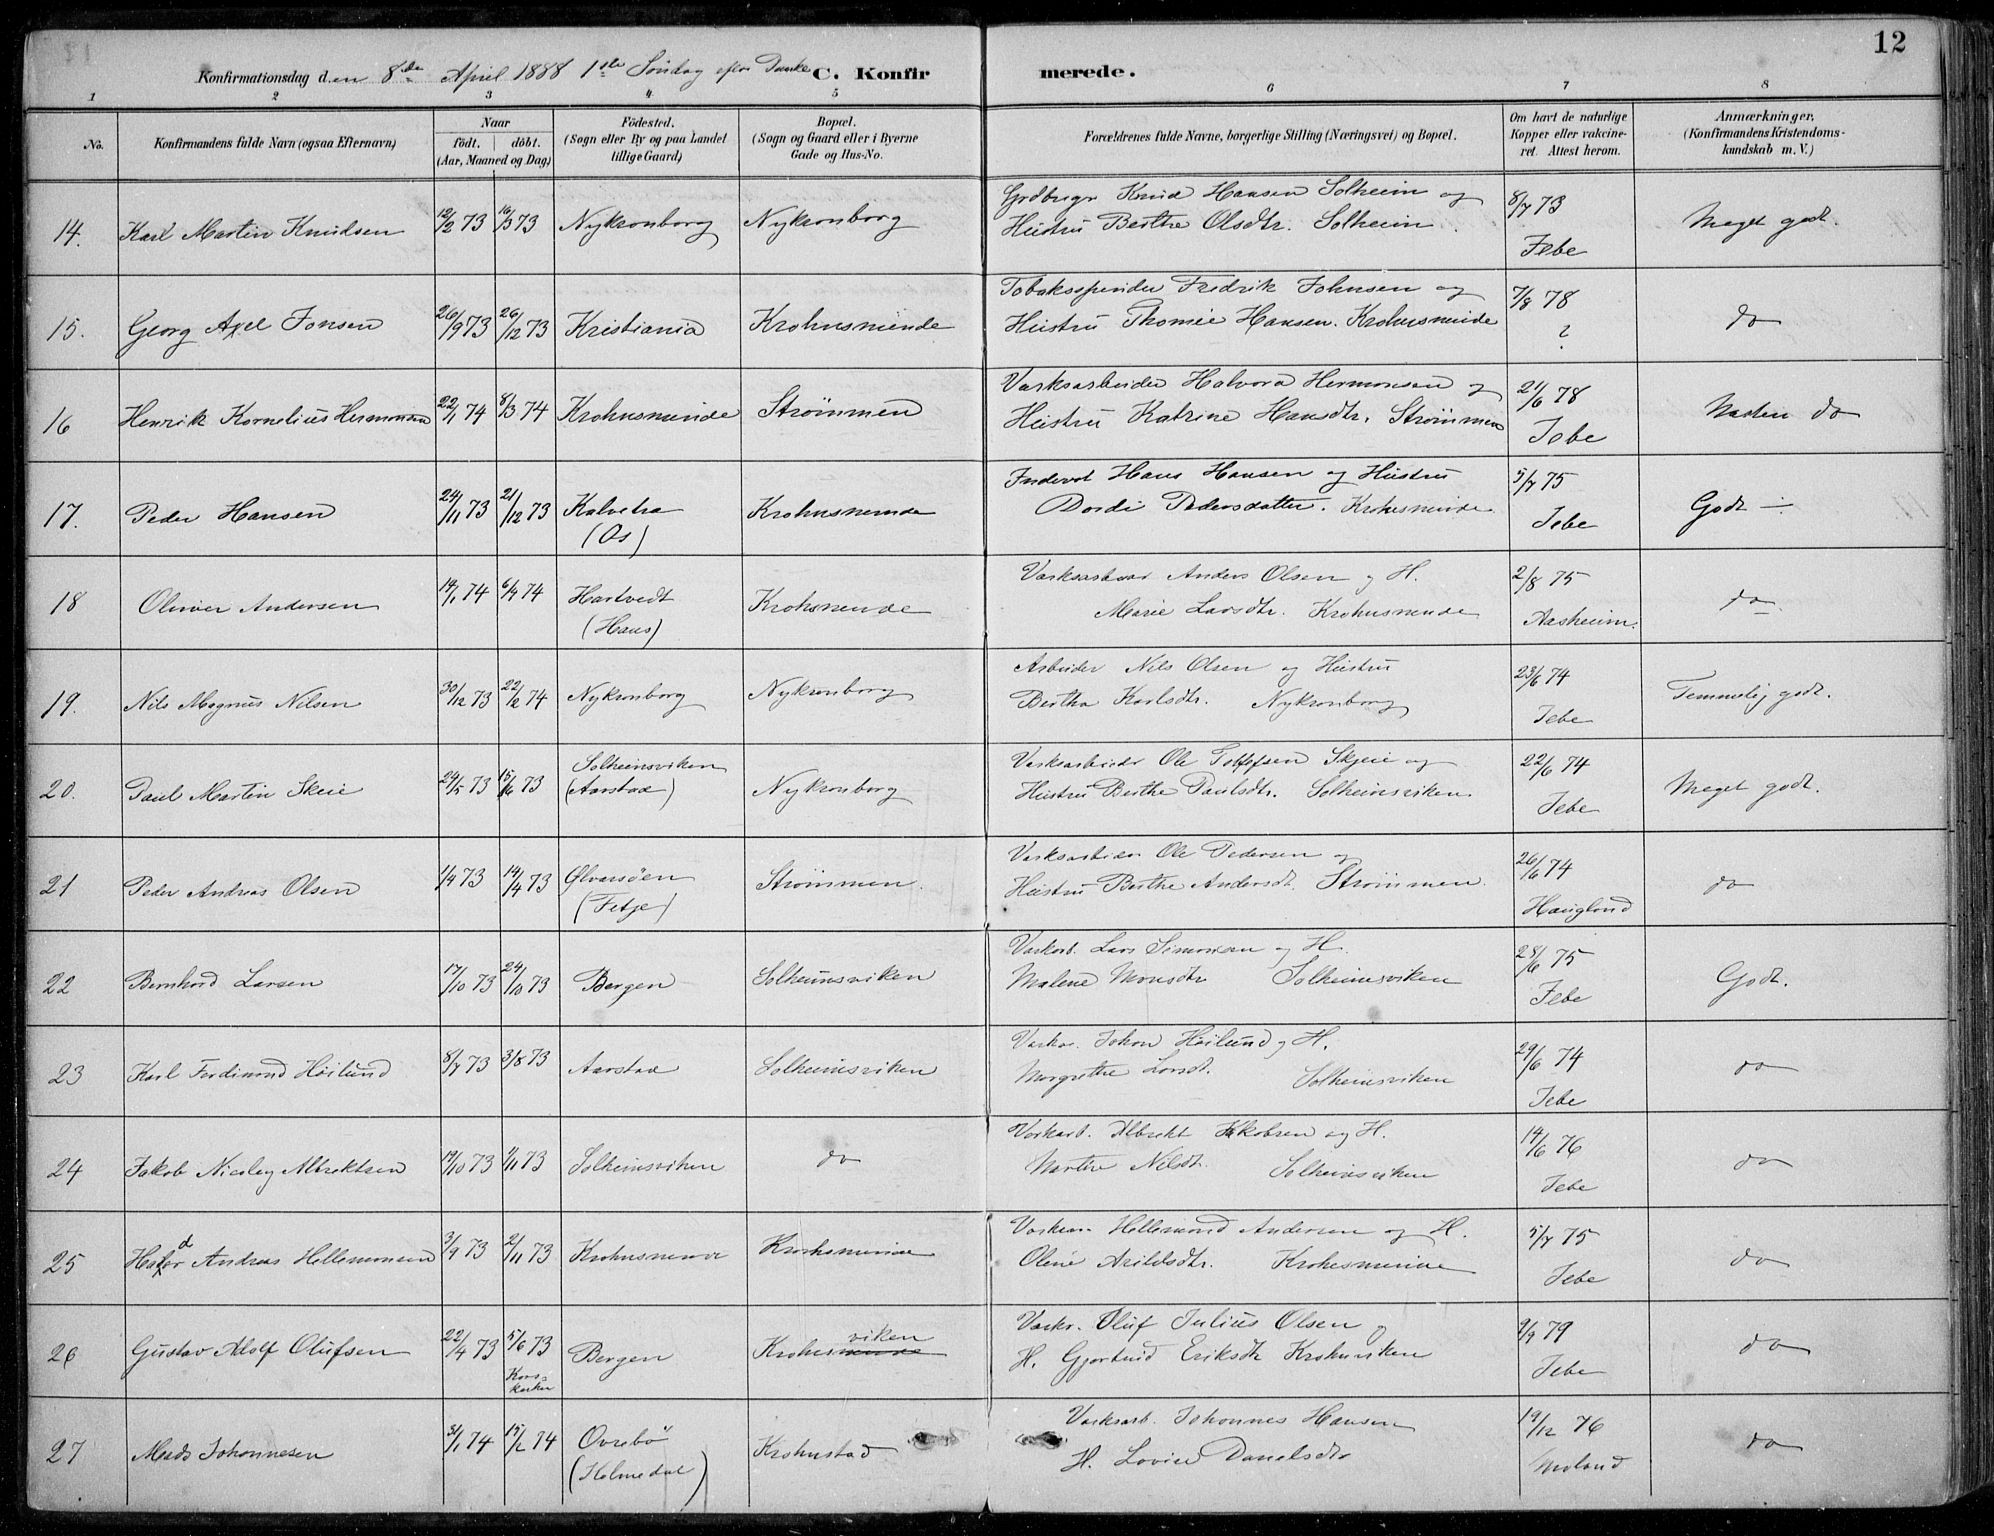 12
Konfirmationsdag den 8de April 1888 1ste Søndag efter Paaske C. Konfirmerede.
1 2 3 4 5 6 7 8
No.
Konfirmandens fulde Navn (ogsaa Efternavn)
Naar
födt. döbt.
(Aar, Maaned og Dag)
Födested.
(Sogn eller By og paa Landet
tillige Gaard)
Bopæl.
(Sogn og Gaard eller i Byerne
Gade og Hus-No.
Forældrenes fulde Navne, borgerlige Stilling (Næringsvei) og Bopæl.
Om havt de naturlige
Kopper eller vakcine-
ret. Attest herom.
Anmærkninger,
(Konfirmandens Kristendoms-
kundskab m. V.)
14. Karl Martin Knudsen 12/2 73 16/3 73 Nykronborg Nykronborg
Grdbrugr Knud Hansen Solheim og
Hustru Berthe Olsdtr. Solheim.
8/7 73
Jebe
Meget godt.
15. Georg Axel Jonsen 26/9 73 26/12 73 Kristiania Krohnsminde
Tobaksspinder Fredrik Johnsen og
Hustru Thomie Hansen. Krohnsminde
7/8 78
?
do
16 Henrik Kornelius Hermonsen 22/1 74 8/3 74 Krohnsminde Strømmen
Værksarbeider Halvora Hermonsen og
Hustru Katrine Hansdtr. Strømmen
21/6 78
Jebe
Næsten do
17. Peder Hansen 24/11 73 21/12 73 Kalvetra
(Os)
Krohnsminde
Inderst Hans Hansen og Hustru
Dordi Pedersdatter. Krohnsminde
5/7 75
Jebe
Godt
18 Oliver Andersen 14/1 74 6/4 74 Hartvedt
(Haus)
Krohnsminde
Anders Olsen og H.
Marie Larsdtr. Krohnsminde
2/8 75
Aasheim.
do
19. Nils Magnus Nilsen 30/12 73 22/2 74 Nykronborg Nykronborg
Arbeider Nils Olsen og Hustru
Bertha Karlsdtr. Nykronborg
23/6 74
Jebe
Temmelig godt.
20. Paul Martin Skeie 24/5 73 15/6 73 Solheimsviken
(Aarstad)
Nykronborg
Værksarbeider Ole Skjeie og
Hustru Berthe Paulsdtr. Solheimsviken.
22/6 74
Jebe
Meget godt.
21 Peder Andreas Olsen 1/4 73 14/4 73
(Fetje)
Strømmen.
Værksarbeider Ole Pedersen og
Hustru Berthe Andersdt. Strømmen.
26/6 74
Haugland
do
22 Bernhard Larsen 17/10 73 24/10 73 Bergen Solheimsviken
Værkarb. Lars Simonsen og H.
Malene Monsdtr Solheimsviken
28/6 75
Jebe
Godt.
23 Karl Ferdinand Höilund 8/7 73 3/8 73 Aarstad Solheimsviken
Johan Höilund og H.
Margrethe Larsdt. Solheimsviken
29/6 74
Jebe
do
24 Jakob Nicolay Albrektsen 14/10 73 2/11 73 Solheimsviken do
Værkarb. Albrekt Jakobsen og H.
Marthe Nilsdtr. Solheimsviken
14/6 76
Jebe
do
25 Andreas Hellemonsen 3/9 73 2/11 73 Krohnsminde Krohnsminde
Hellemond Andersen og H.
Olene Arildsdtr. Krohnsminde
5/7 75
Jebe
do
26 Gustav Adolf Olufsen 22/4 73 5/6 73
Kors-
kirken
Bergen
viken
Krohnsminde
Oluf Julius Olsen og
H. Gjertrud Eriksdtr Krohnviken
9/9 79
Jebe
do
27 Mads Johannesen 31/1 74 15/2 74 Øvrebö
(Holmedal)
Krohnstad
Værksarb. Johannes Hansen
H. Lovise Danielsdtr
19/12 76
do